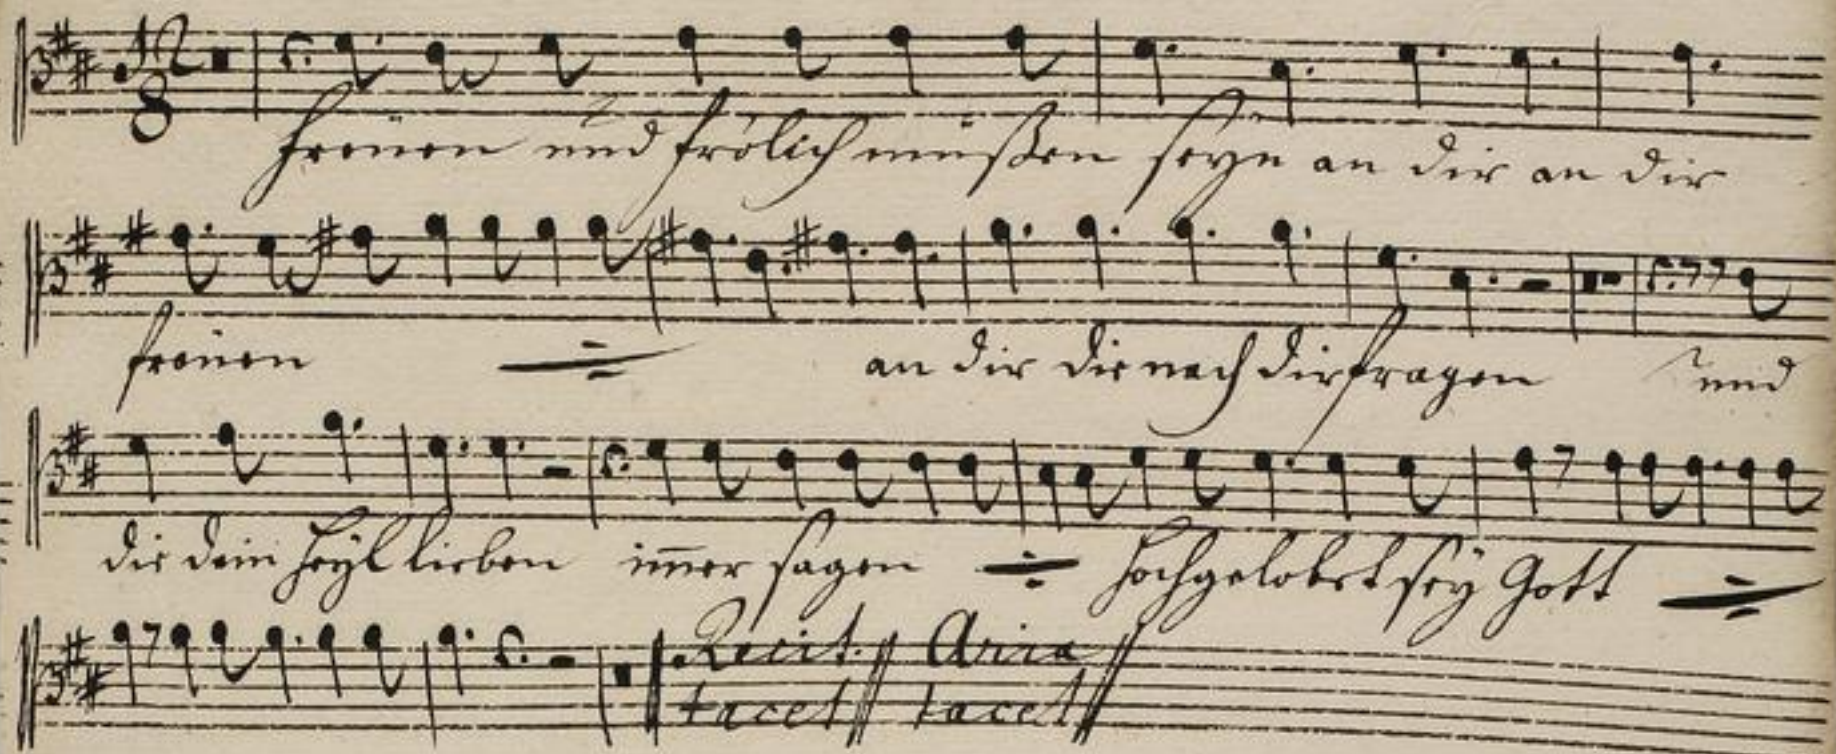 12
8
freüen und frölich müßen seyn an dir an dir
freüen an dir die nach dir fragen und
die dein heyl lieben im̄er sagen hochgelobet sey Gott
Recit. Aria
tacet tacet